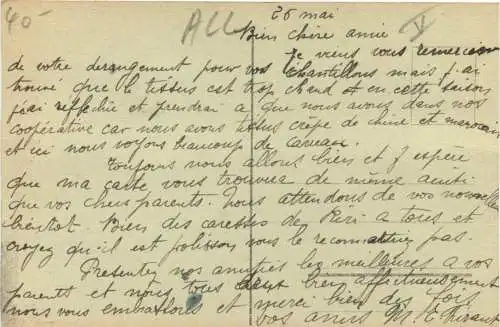 40-
ALL
V
26 mai
Bien chère amie
Je viens vous remercier
de votre derangement pour vos échantillons mais j'ai
trouvé que le tissus est trop chaud en cette saison
j'ai refflechie et prendrai a que nous avons dans nos
coopérative car nous avons tissus crêpe de chine et marocain
et ici nous voyons beaucoup de
Toujours nous allons bien et j espère
que ma carte vous trouvera de même ainsi
que vos chers parents. Nous attendons de vos nouvelles
bientot. Bien des caresses de Kiri a tous et
croyez qu'il est polisson vous le reconnaitriez pas.
Presentez nos amitiés les meilleures a vos
parents et nous tous deux bien affectueusement
nous vous embrassons et merci bien des fois
vos amis M. C.